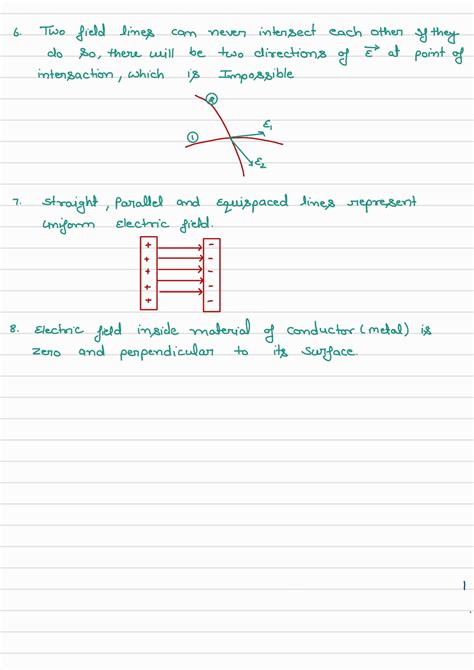 6. Two field lines can never intersect each other if they
do so, there will be two directions of E→ at point of
intersaction, which is Impossible
2
1
E1
E2
7. straight, parallel and equispaced lines represent
uniform electric field.
+ -
+ -
+ -
+ -
+ -
8. Electric field inside material of conductor (metal) is
zero and perpendicular to its surface.
1